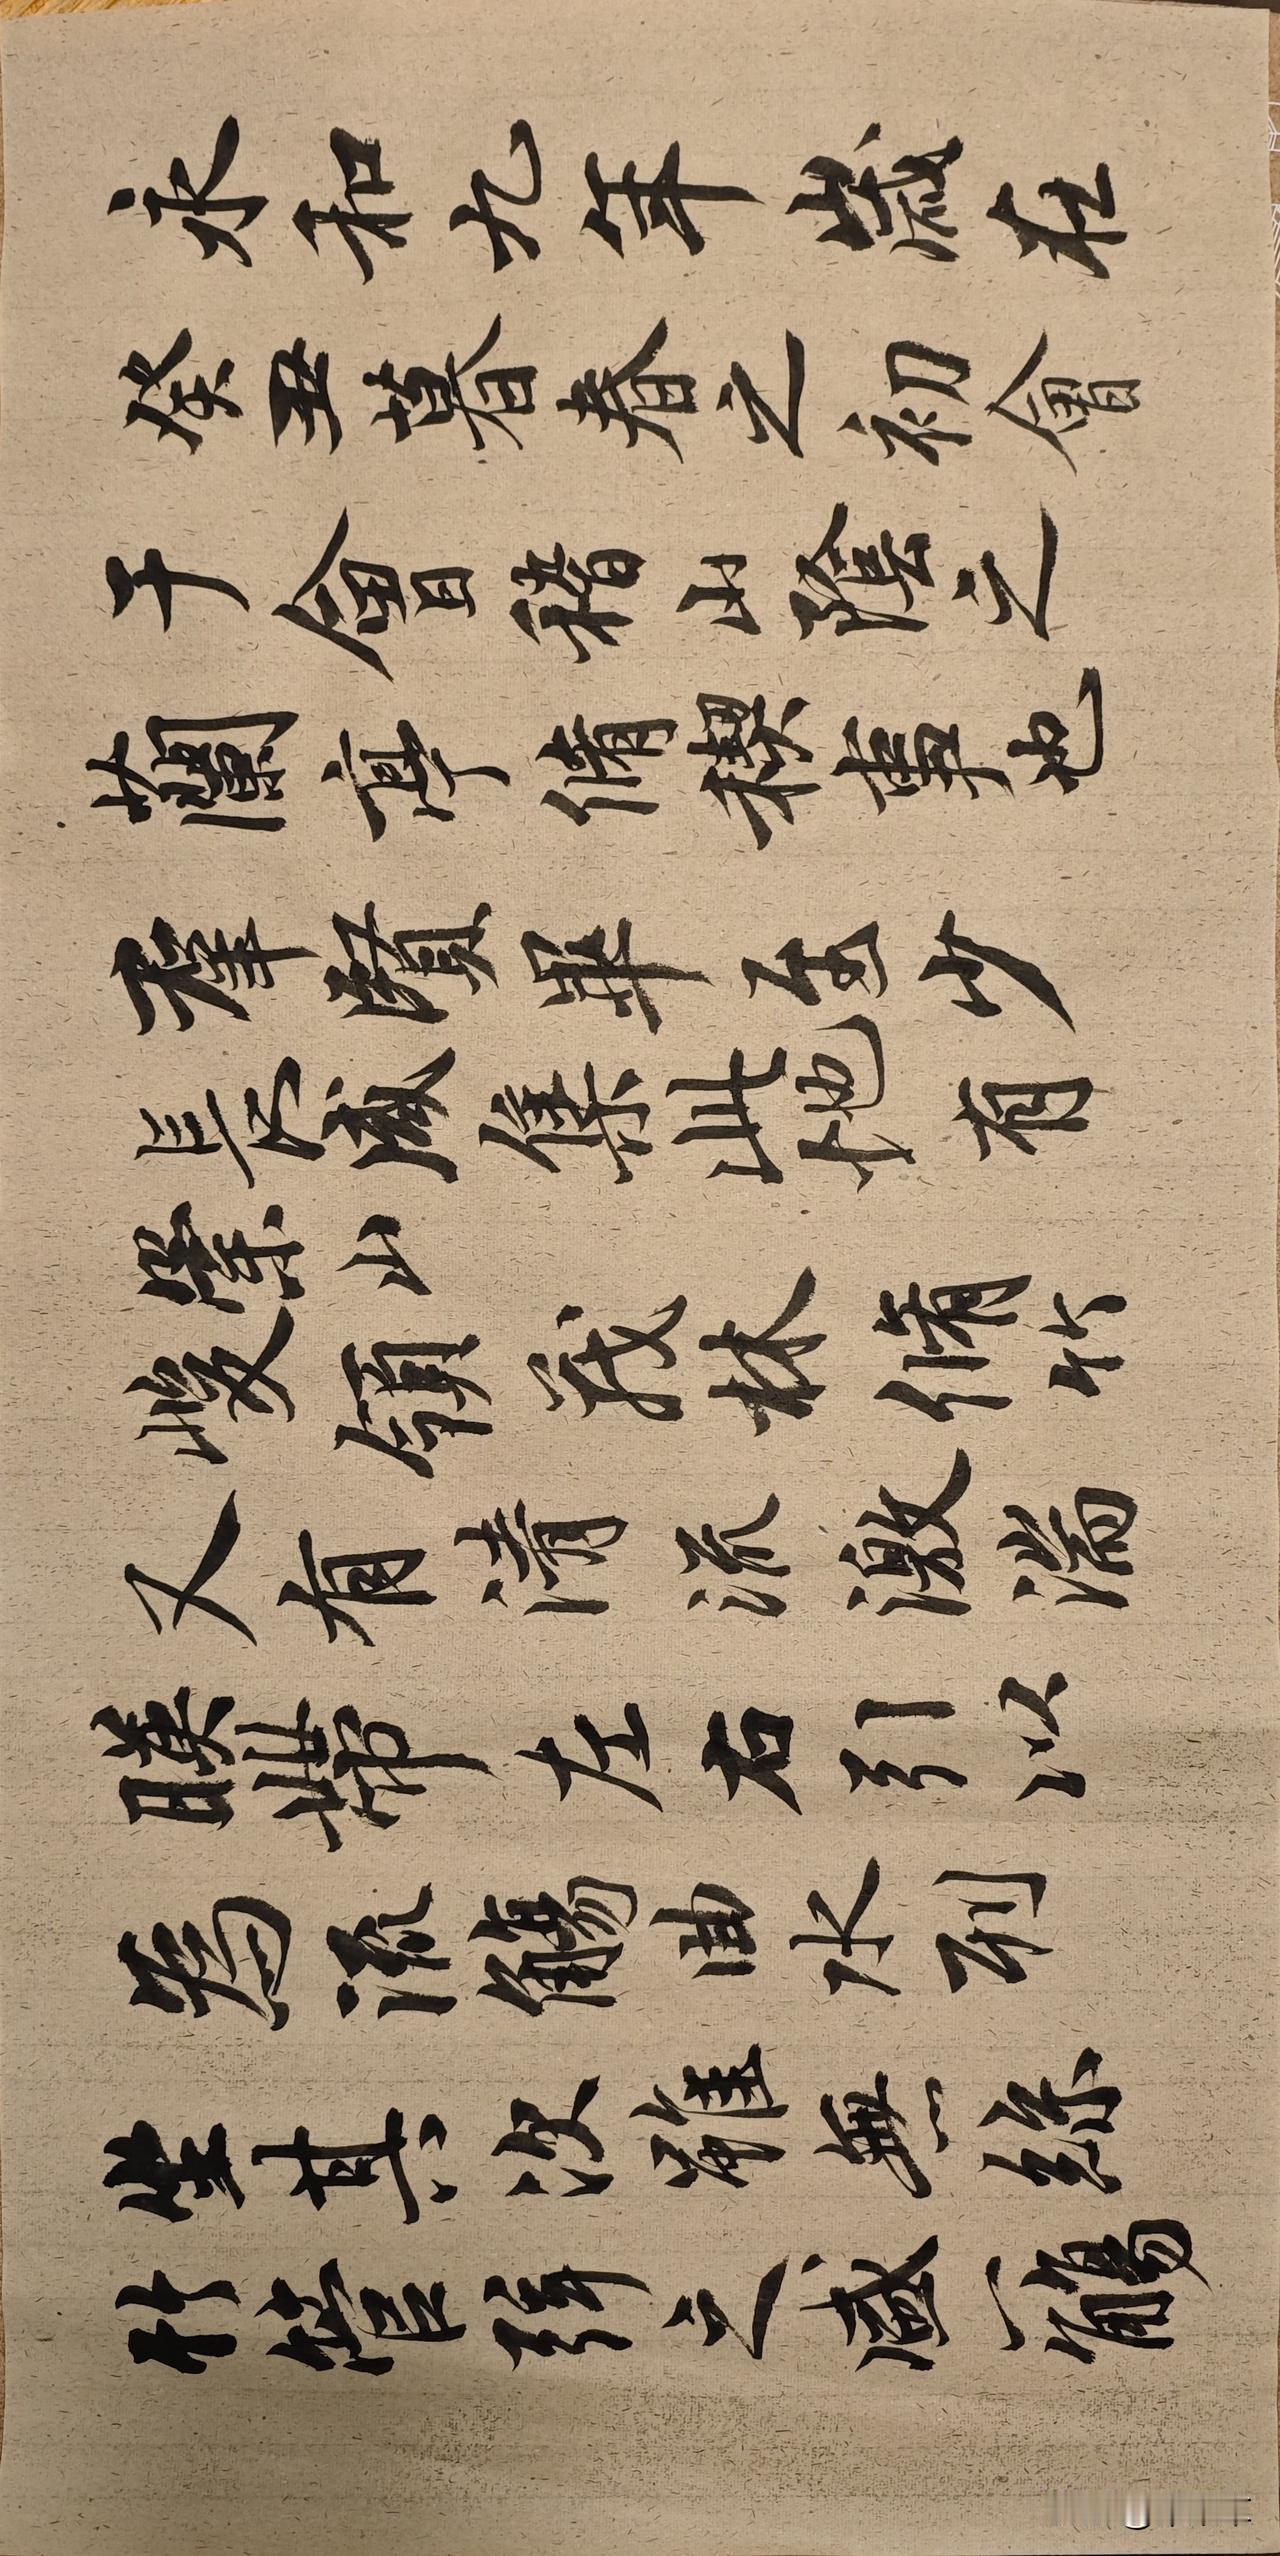 永和九年歲在
癸丑暮春之初會
于會稽山陰之
蘭亭脩禊事也
羣賢畢至少
長咸集此地有
崇山
峻領茂林脩竹
又有清流激湍
暎帶左右引以
為流觴曲水列
坐其次雖無絲
竹管弦之盛一觴